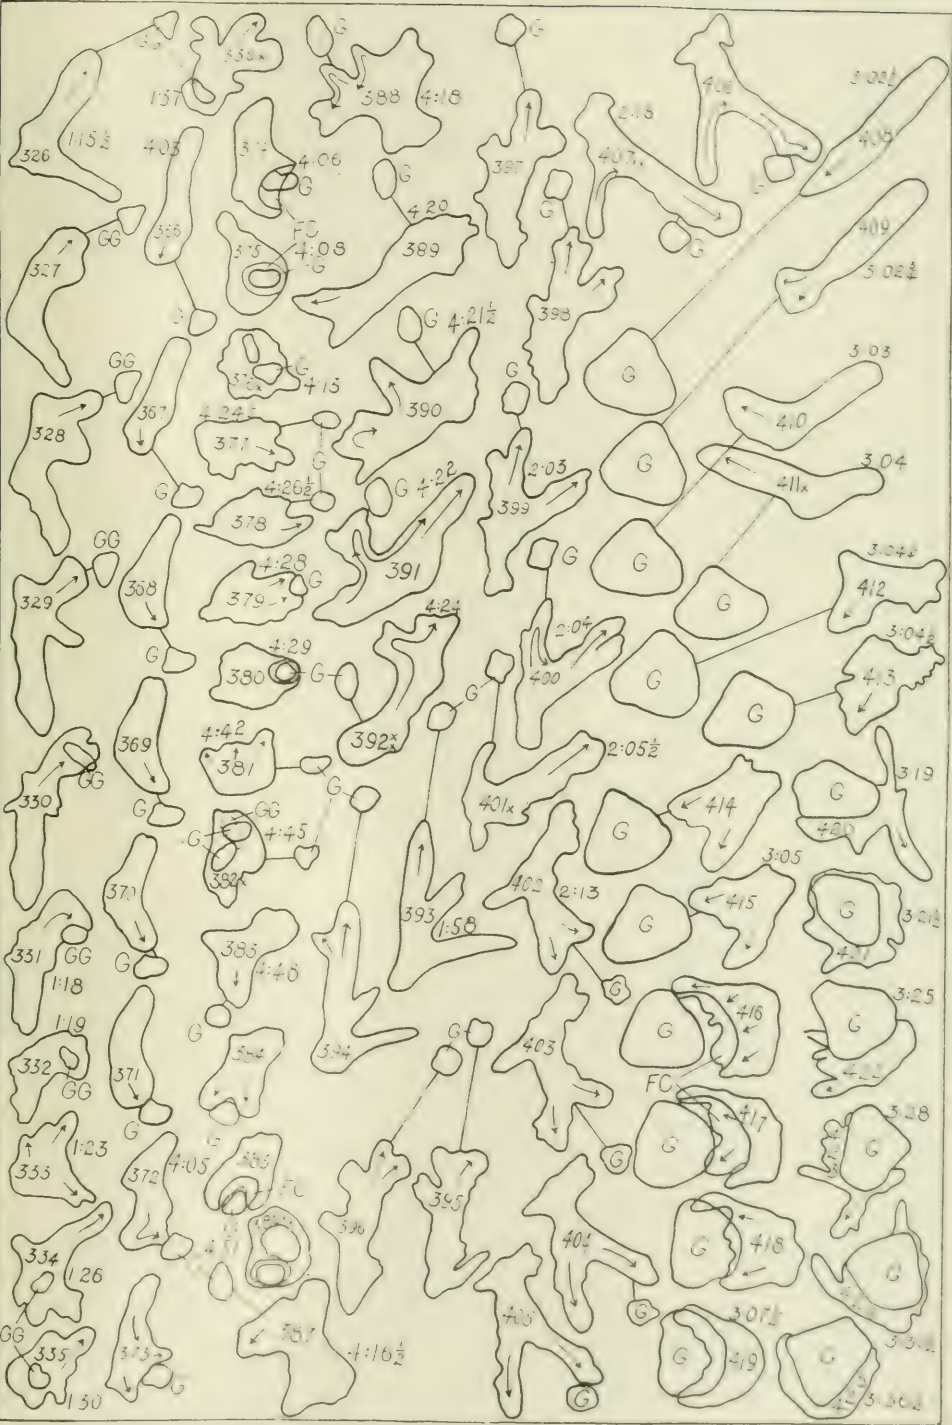 326
1:15½
GG
327
GG
328
GG
329
GG
330
GG
331
GG
1:18
1:19
332
GG
1:23
333
334
1:26
GG
335
1:30
1:57
4:03
366
G
367
G
368
G
369
G
370
G
371
G
372
4:05
373
G
4:06
G
FC
375
4:08
G
G
4:15
4:24½
377
G
4:26½
378
4:28
379
G
4:29
380
G
4:42
381
G
GG
G
4:45
382x
383
4:46
G
384
G
385
FC
387
4:16½
G
388
4:18
G
4:20
389
G
4:21½
390
G
4:22
391
4:24
392x
G
393
1:58
394
G
395
396
G
397
G
398
G
399
2:03
G
400
2:04
401x
2:05½
402
2:13
G
403
G
404
G
405
G
2:18
407x
G
406
G
3:02½
408
G
409
3:02¾
G
3:03
410
G
411x
3:04
G
3:04½
412
G
413
G
414
G
3:05
415
G
416
G
FC
417
G
418
G
3:07½
419
G
3:19
G
420
G
3:21½
421
3:25
G
422
3:28
G
G
G